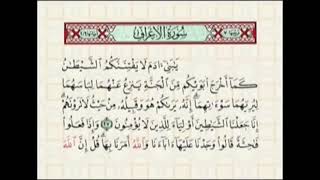 سُورَةُ الأَعْرَافِ
يَٰبَنِىٓ ءَادَمَ لَا يَفْتِنَنَّكُمُ ٱلشَّيْطَٰنُ
كَمَآ أَخْرَجَ أَبَوَيْكُم مِّنَ ٱلْجَنَّةِ يَنزِعُ عَنْهُمَا لِبَاسَهُمَا
لِيُرِيَهُمَا سَوْءَٰتِهِمَآ إِنَّهُۥ يَرَىٰكُمْ هُوَ وَقَبِيلُهُۥ مِنْ حَيْثُ لَا تَرَوْنَهُمْ
إِنَّا جَعَلْنَا ٱلشَّيَٰطِينَ أَوْلِيَآءَ لِلَّذِينَ لَا يُؤْمِنُونَ ٢٧ وَإِذَا فَعَلُوا۟
فَٰحِشَةً قَالُوا۟ وَجَدْنَا عَلَيْهَآ ءَابَآءَنَا وَٱللَّهُ أَمَرَنَا بِهَا قُلْ إِنَّ ٱللَّهَ